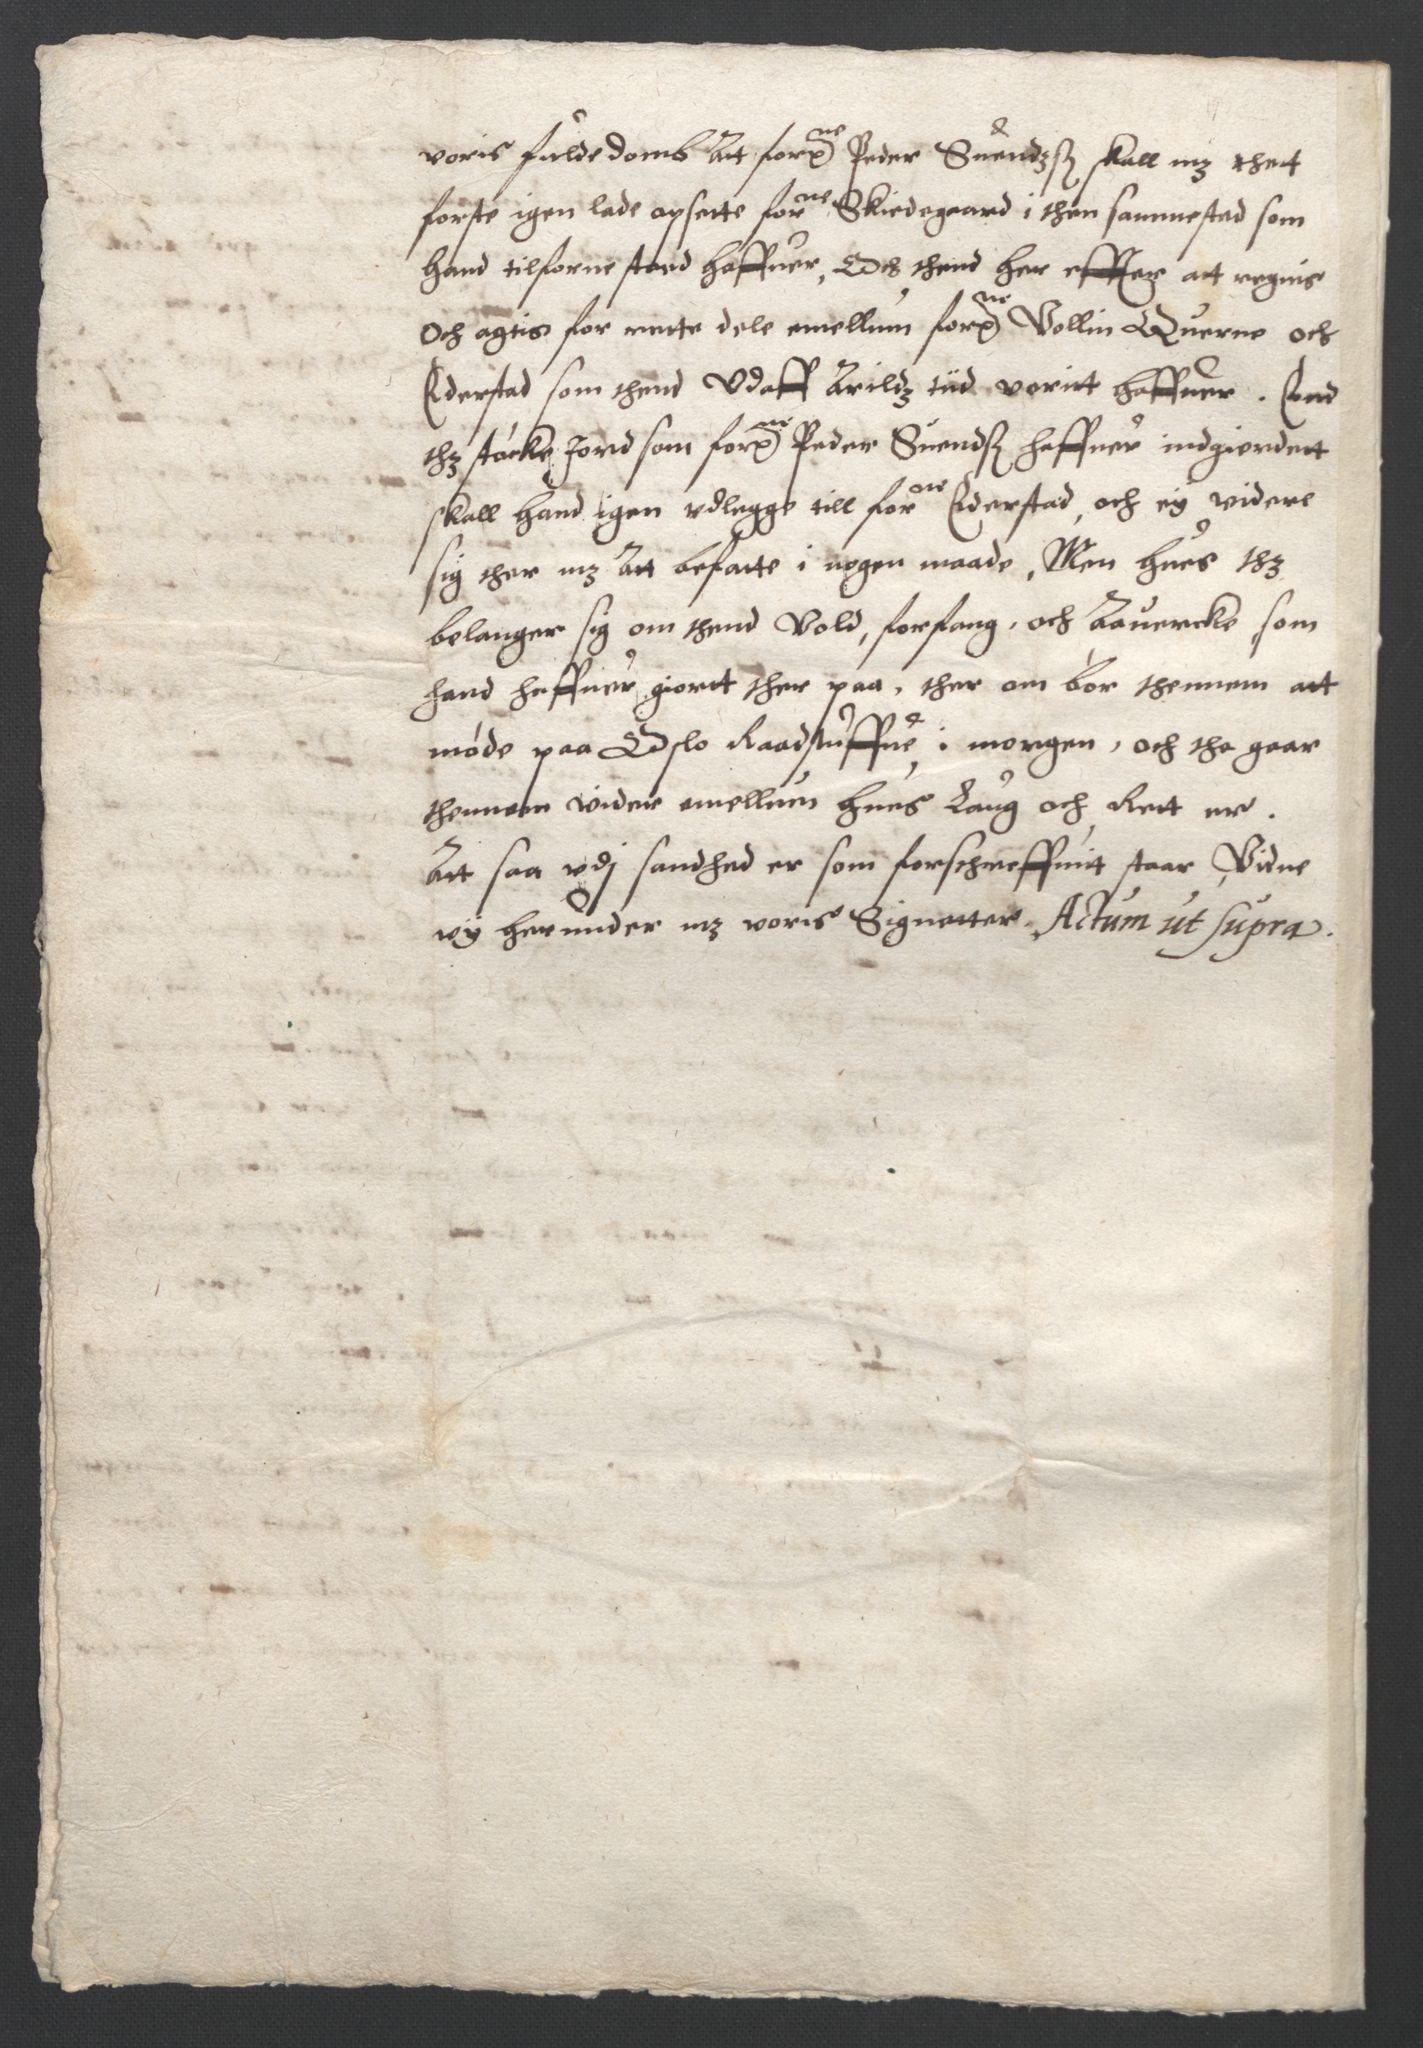 voris fulde domb Att forne Peder Suendzß skall mz thett
første igen lade opsette forne Skiedegaard i then sammestad som
hand tilforne staed haffuer, Och thend her effter att regnis
Och agtis for rette dele emellum forne Vollin Querne och
Ederstad som thend Vdaff Arildz tiid verritt haffuer. Emd
thz støcke Jord som forne Peder Suendß haffuer indgierdett
skall hand igen vdlegge till forne Ederstad, och eÿ videre
sig ther mz Att befatte i nogen maade, Men hues thz
belanger sig om thend Vold, forfang, och Aauercke som
hand haffuer giortt ther paa, ther om bør thennem att
møde paa Oslo Raadstuffue i morgen, och tha gaar
thennem videre emellum hues Laug och Rett er.
Att saa vdj sandhed er som forschreffuitt staar, Vidne
vÿ herunder mz voris Signetter. Actum ut supra.